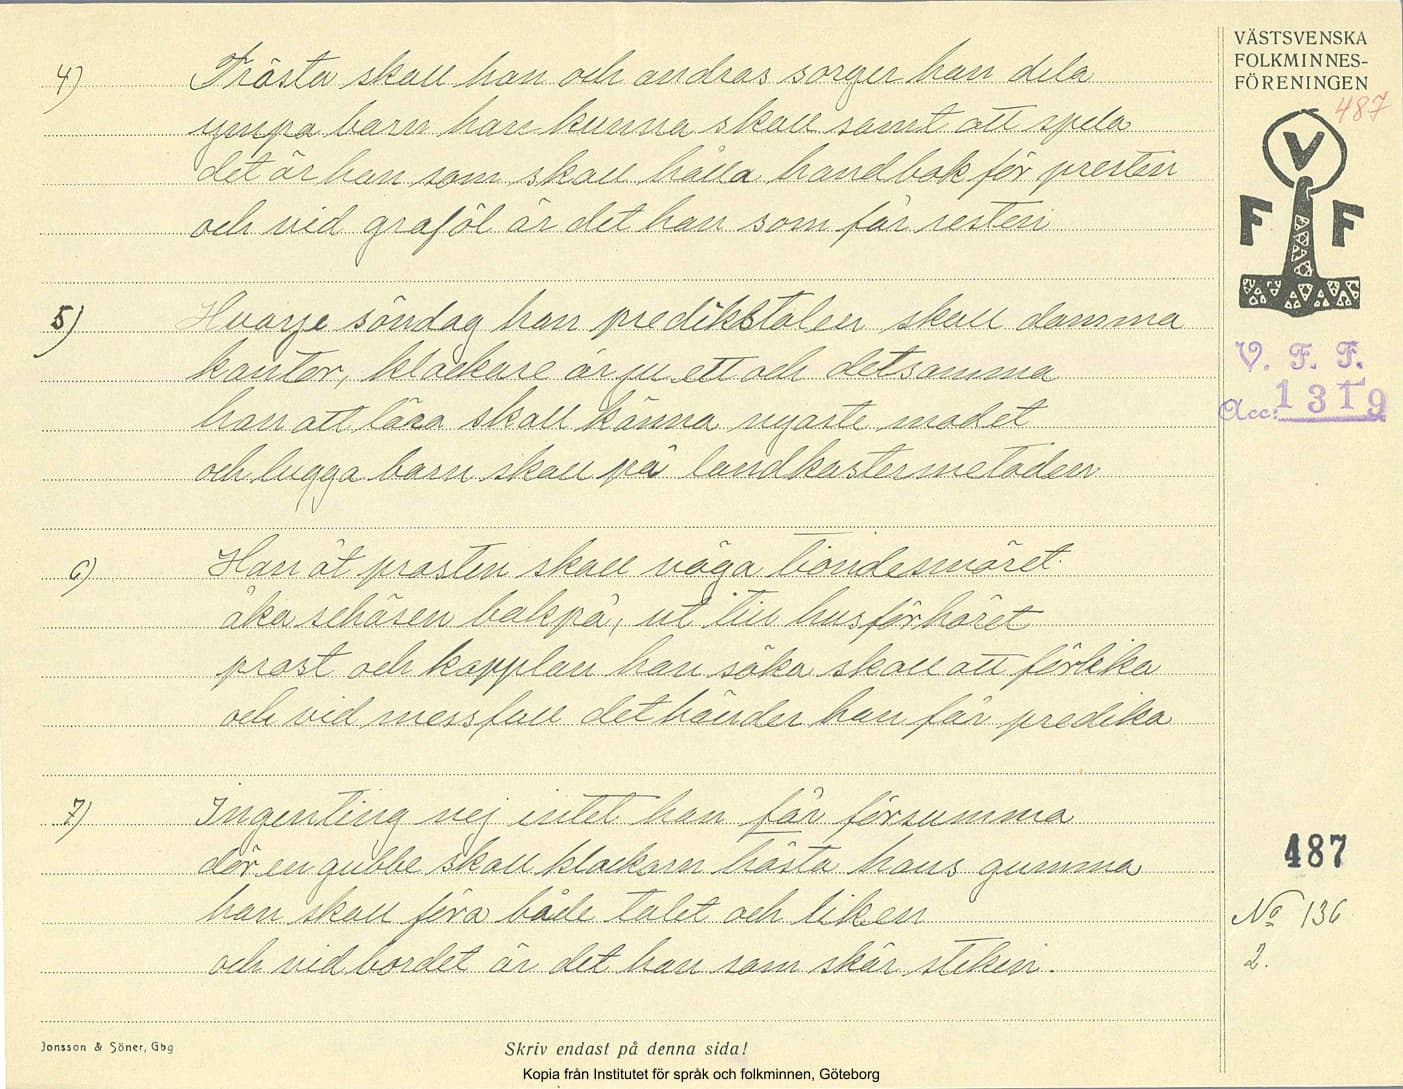 VÄSTSVENSKA
FOLKMINNES-
FÖRENINGEN
487
V
F F
V. F. F.
Acc: 1319
4) Trösta skall han och andras sorger han dela
ympa barn han kunna skall samt att spela
det är han som skall hålla handbok för presten
och vid graföl är det han som får resten
5) Hvarje söndag han predikstolen skall damma
kantor, klockare är ju ett och detsamma
han att lära skall känna nyaste modet
och lugga barn skall på landkastermetoden
6) Han åt prosten skall väga tiondesmöret
åka schäsen bakpå, ut till husförhöret
prost och kapplan han söka skall att förlika
och vid messfall det händer han får predika
7) Ingenting nej intet han får försumma
dör en gubbe skall klockarn trösta hans gumma
han skall föra både talet och liken
och vid bordet är det han som skär steken.
487
No 136
2.
Jonsson & Söner, Gbg
Skriv endast på denna sida!
Kopia från Institutet för språk och folkminnen, Göteborg